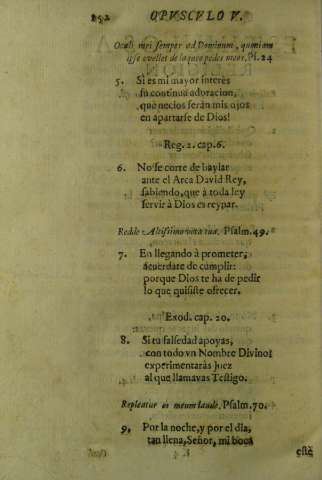 252 OPVSCVLO V.
Oculi mei semper ad Dominum, quoniam
ipse evellet de laqueo pedes meos. Ps. 24
5. Si es mi mayor interès
su continua adoracion,
què necios seràn mis ojos
en apartarse de Dios!
Reg. 2. cap. 6.
6. No se corte de baylar
ante el Arca David Rey,
sabiendo, que à toda ley
servir à Dios es reynar.
Redde Altissimo vota tua. Psalm. 49.
7. En llegando à prometer,
acuerdate de cumplir:
porque Dios te ha de pedir
lo que quisiste ofrecer.
Exod. cap. 20.
8. Si tu falsedad apoyas,
con todo vn Nombre Divino:
experimentaràs Juez
al que llamavas Testigo.
Repleatur os meum laude. Psalm. 70.
9, Por la noche, y por el dia,
tan llena, Señor, mi boca
estè